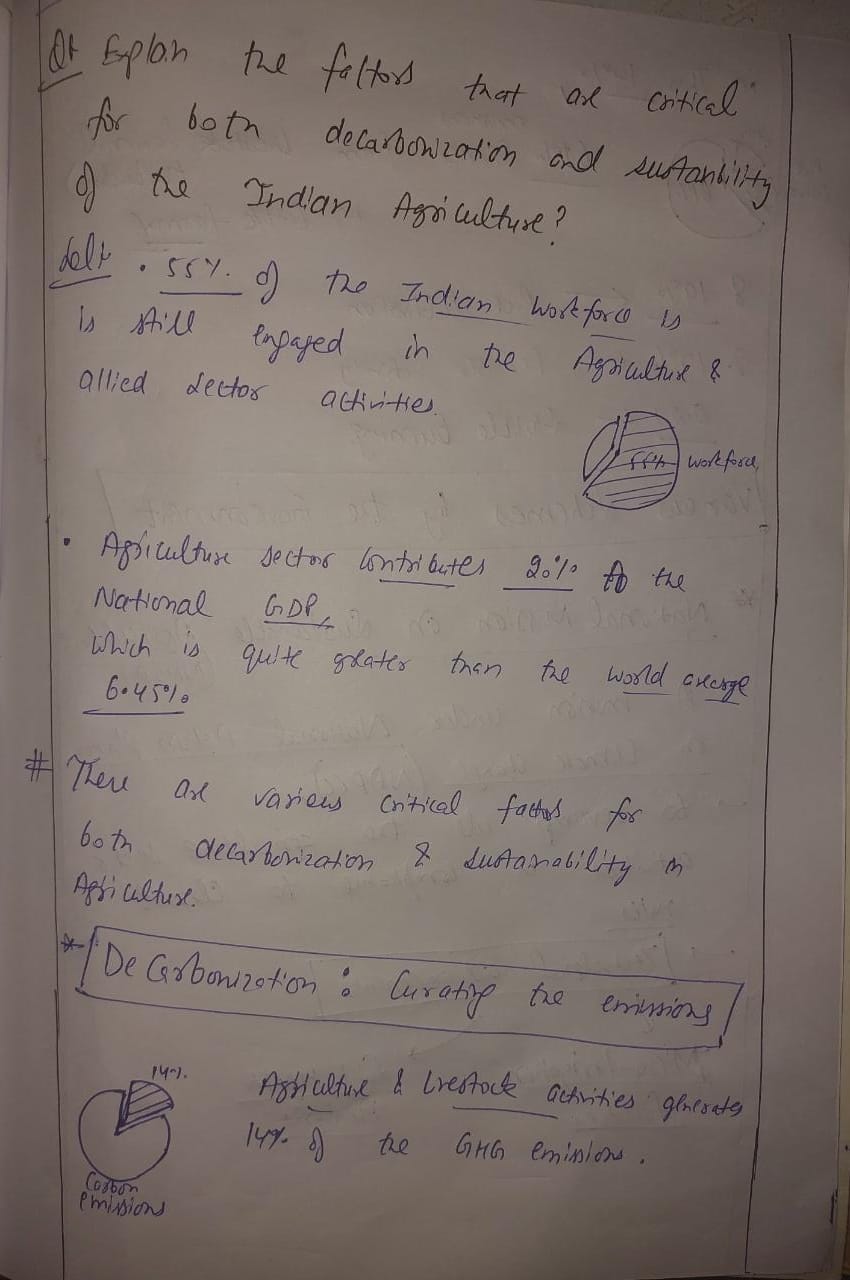 Q1 Explain the factors that are critical
for both decarbonization and sustanbility
of the Indian Agriculture?
Sol:
• 55% of the Indian workforce is
is still engaged in the Agriculture &
allied sector activities.
55% workforce
• Agriculture sector contributes 20% to the
National GDP,
which is quite greater than the world average
6.45%
# There are various critical factors for
both decarbonization & sustainability in
Agriculture.
* Decarbonization : Curating the emissions
14%
Agriculture & livestock activities generates
14% of the GHG emissions.
Carbon
emissions